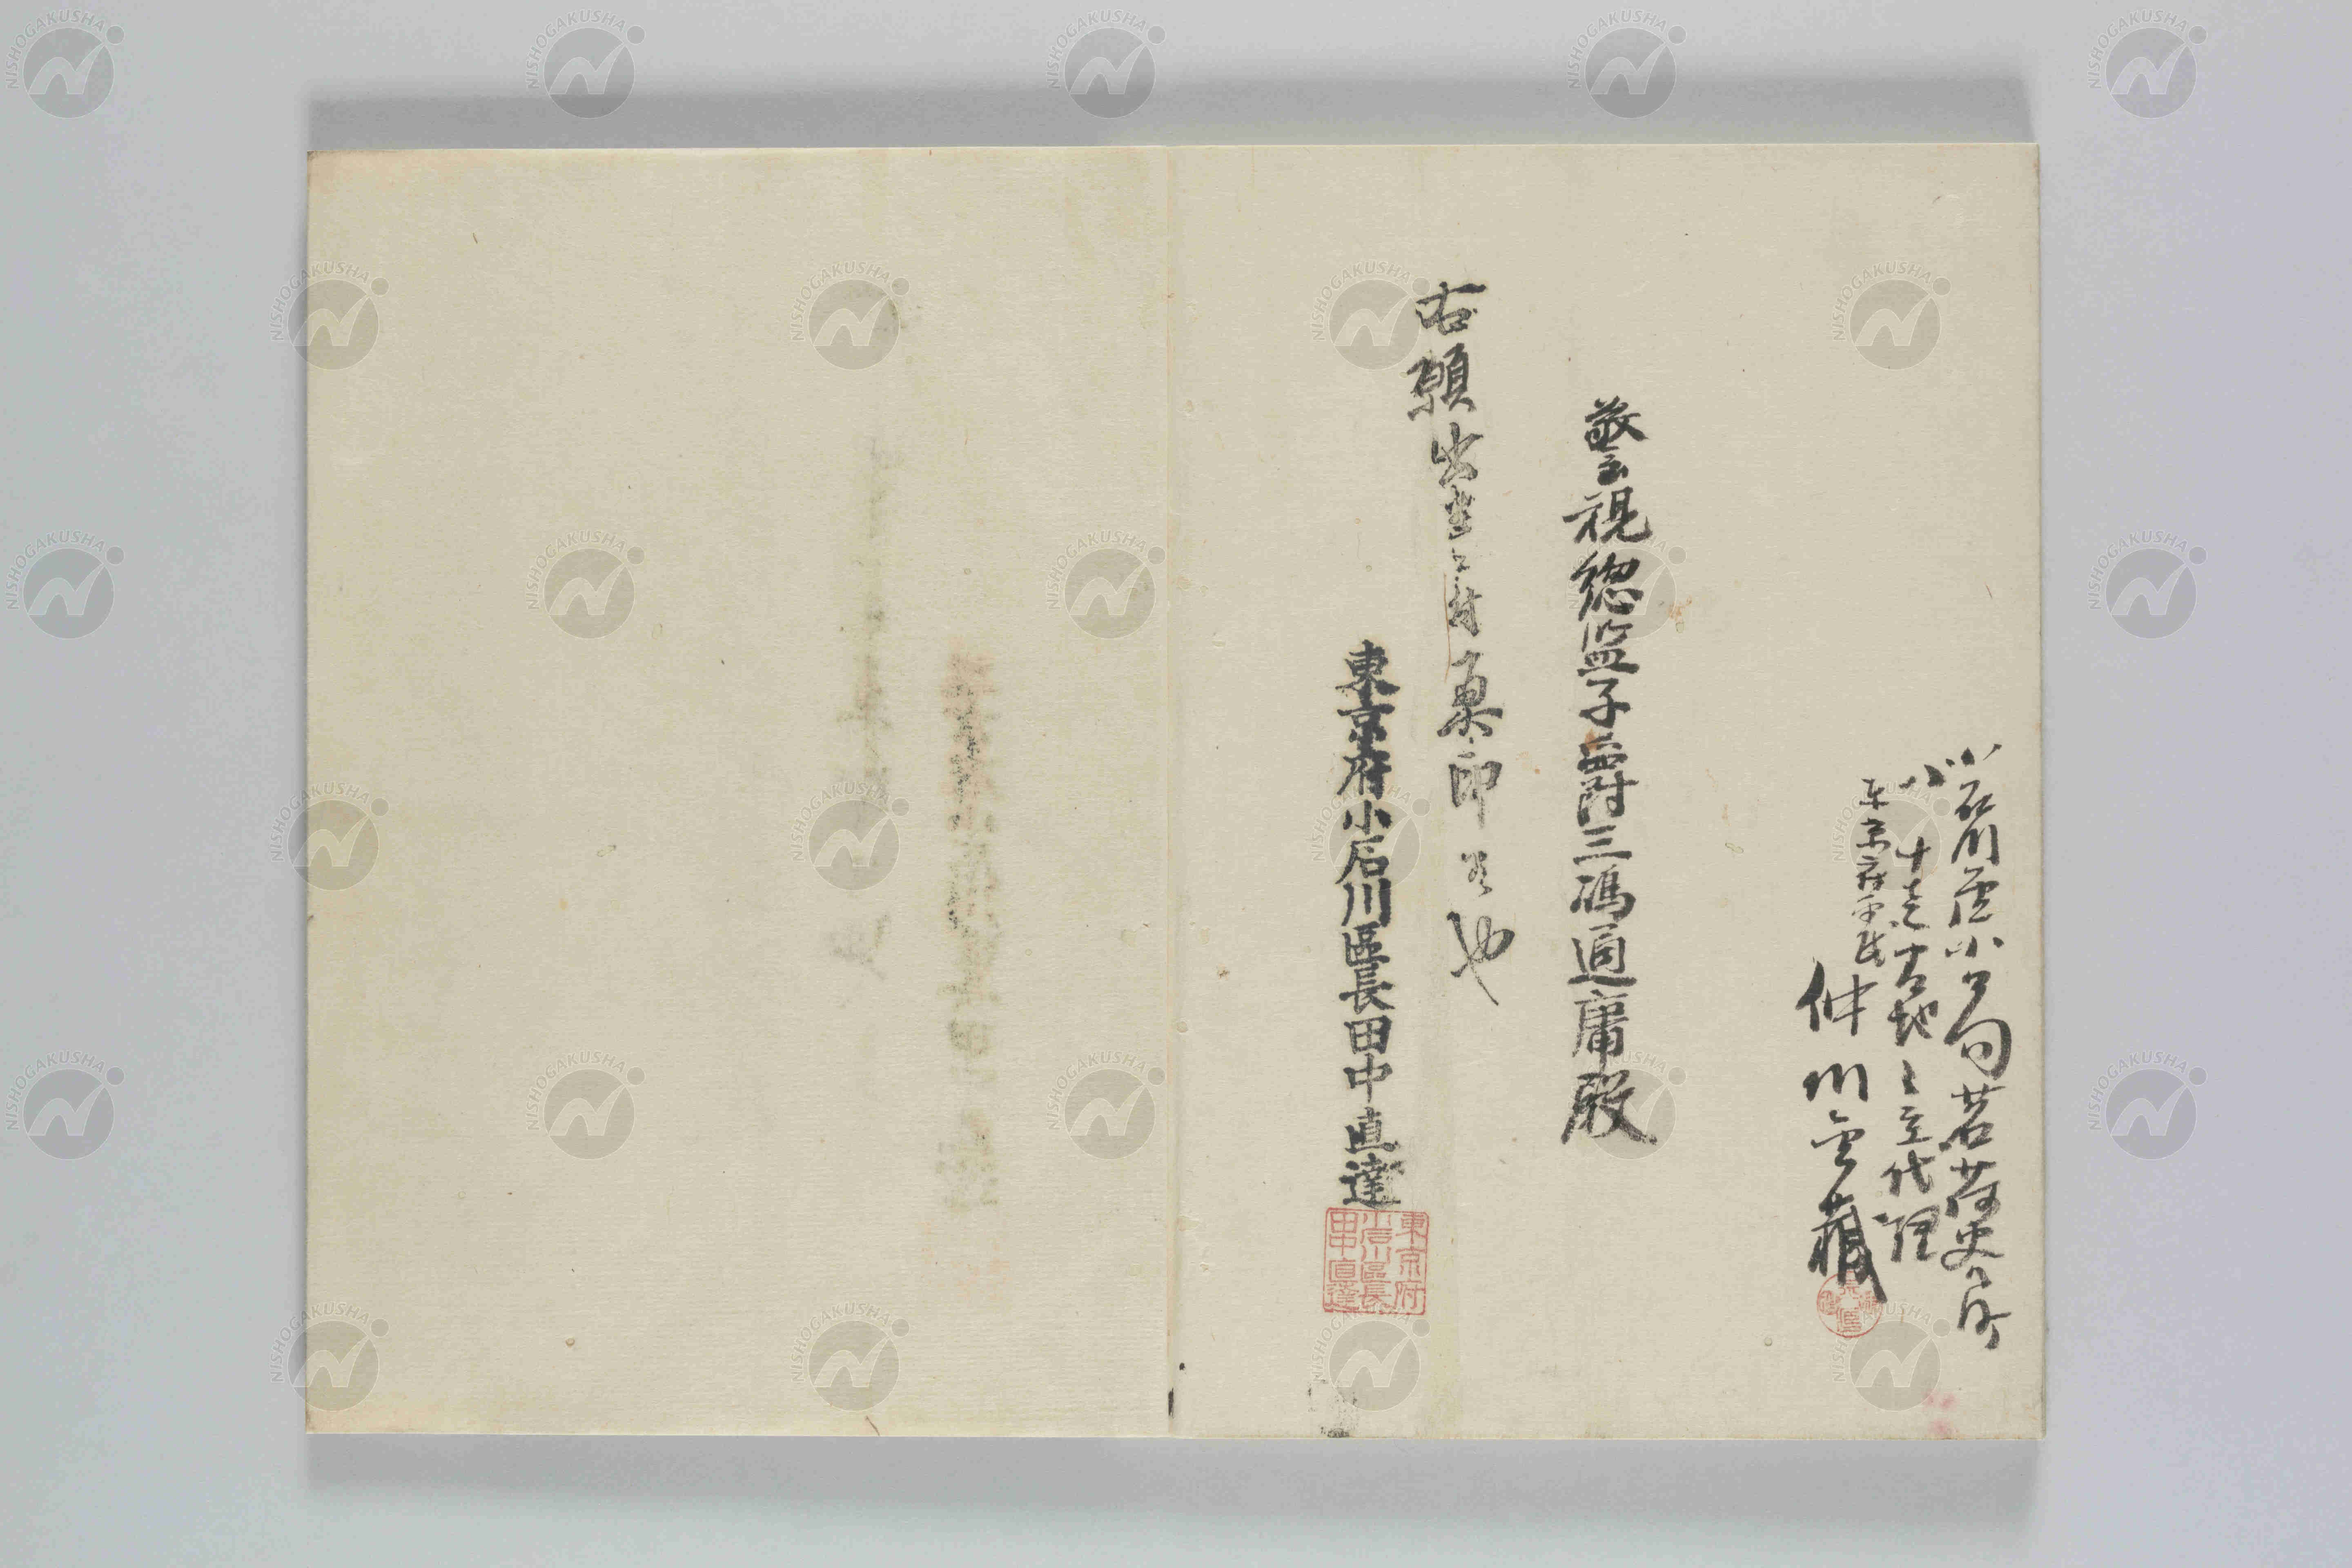 小石川區小日向茗荷谷町
八十壱番地々主代理
東京府平民
仲川雲
警視總監子爵三嶋通庸殿
右願出ニ付奥印候也
東京府小石川區長田中直達
東京府
小石川區長
田中直達
NISHOGAKUSHA